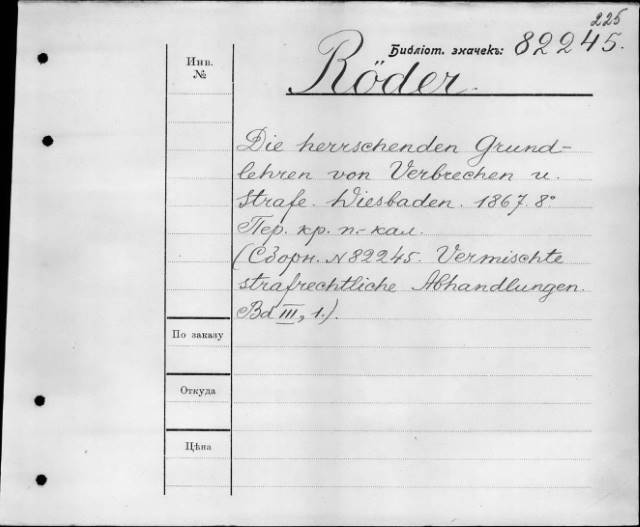 225
Библіот. значекъ: 82245.
Инв.
№
Röder.
Die herrschenden Grund-
lehren von Verbrechen u.
Strafe. Wiesbaden. 1867. 8°
Пер. кр. п.-кал.
(Сборн. N 82245. Vermischte
strafrechtliche Abhandlungen.
Bd III, 1.).
По заказу
Откуда
Цѣна